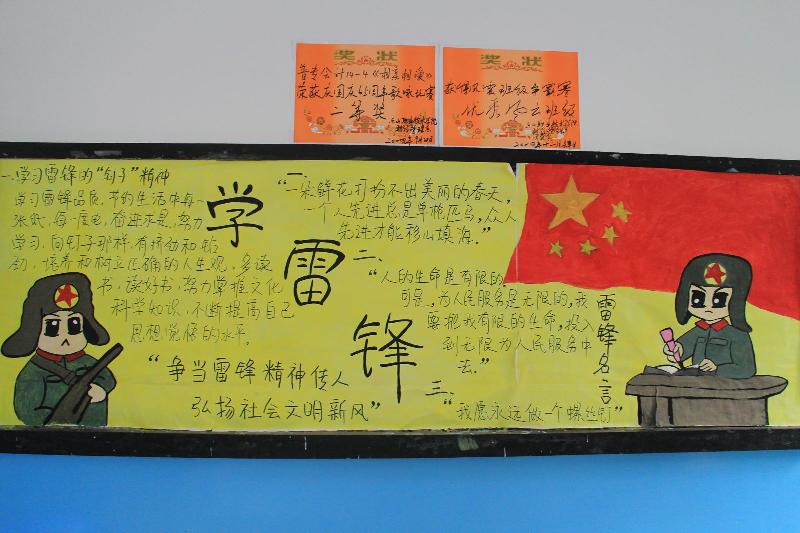 奖状
普专会计14-4《相亲相爱》
荣获庆国庆65周年歌咏比赛
二等奖
奖状
获得风云班级争霸赛
优秀风云班级
一.学习雷锋的“钉子”精神
学习雷锋品质,节约生活中每一
张纸,每一度电,奋进求是,努力
学习,向钉子那样,有挤劲和钻
劲,培养和树立正确的人生观。多读
书,读好书,努力掌握文化
科学知识,不断提高自己
思想觉悟的水平。
“争当雷锋精神传人
弘扬社会文明新风”
学
雷
锋
一、
“一朵鲜花打扮不出美丽的春天,
一个人先进总是单枪匹马,众人
先进才能移山填海。”
二、
“人的生命是有限的
可是,为人民服务是无限的,我
要把我有限的生命,投入
到无限为人民服务中
去。”
三、
“我愿永远做一个螺丝钉”
雷锋名言